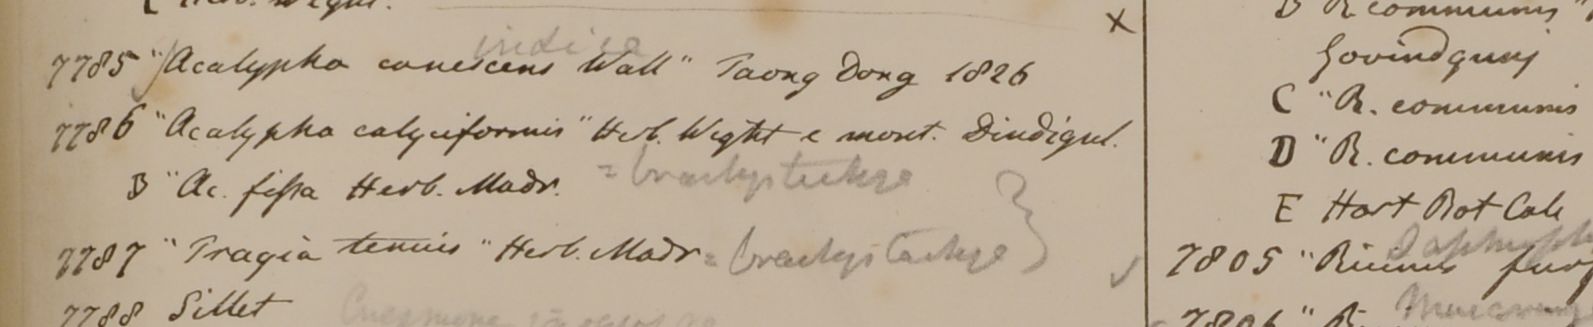 Herb. Wight.
×
indica
7785 "Acalypha canescens Wall" Taong Dong 1826
7786 "Acalypha calyciformis" Herb. Wight e mont. Dindigul.
= brachystachya
B "Ac. fissa Herb. Madr.
7787 "Tragia tenuis" Herb. Madr = brachystachya }
7788 Sillet
B R. communis
Govindgunj
C "R. communis
D "R. communis
E Hort Bot Calc
7805 "Ricinus
7806 "R.